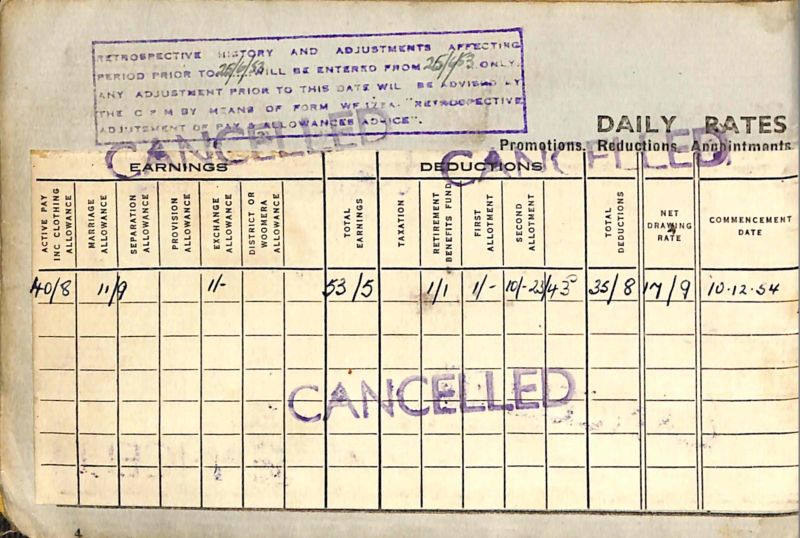 RETROSPECTIVE HISTORY AND ADJUSTMENTS AFFECTING
PERIOD PRIOR TO 25/6/53 WILL BE ENTERED FROM 25/6/53 ONLY.
ANY ADJUSTMENT PRIOR TO THIS DATE WILL BE ADVISED BY
THE C P M BY MEANS OF FORM "RETROSPECTIVE
ADJUTEMENT OF PAY & ALLOWANCES ADVICE".
DAILY RATES
CANCELLED
CANCELLED
Promotions. Reductions. Appointments
EARNINGS
DEDUCTIONS
ACTIVE PAY INC CLOTHING ALLOWANCE
MARRIAGE ALLOWANCE
SEPARATION ALLOWANCE
PROVISION ALLOWANCE
EXCHANGE ALLOWANCE
DISTRICT OR WOOMERA ALLOWANCE
TOTAL EARNINGS
TAXATION
RETIREMENT BENEFITS FUND
FIRST ALLOTMENT
SECOND ALLOTMENT
TOTAL DEDUCTIONS
NET DRAWING RATE
COMMENCEMENT DATE
40/8 11/9 1/- 53/5 1/1 1/- 10/- 35/8 17/9 10.12.54
CANCELLED
4